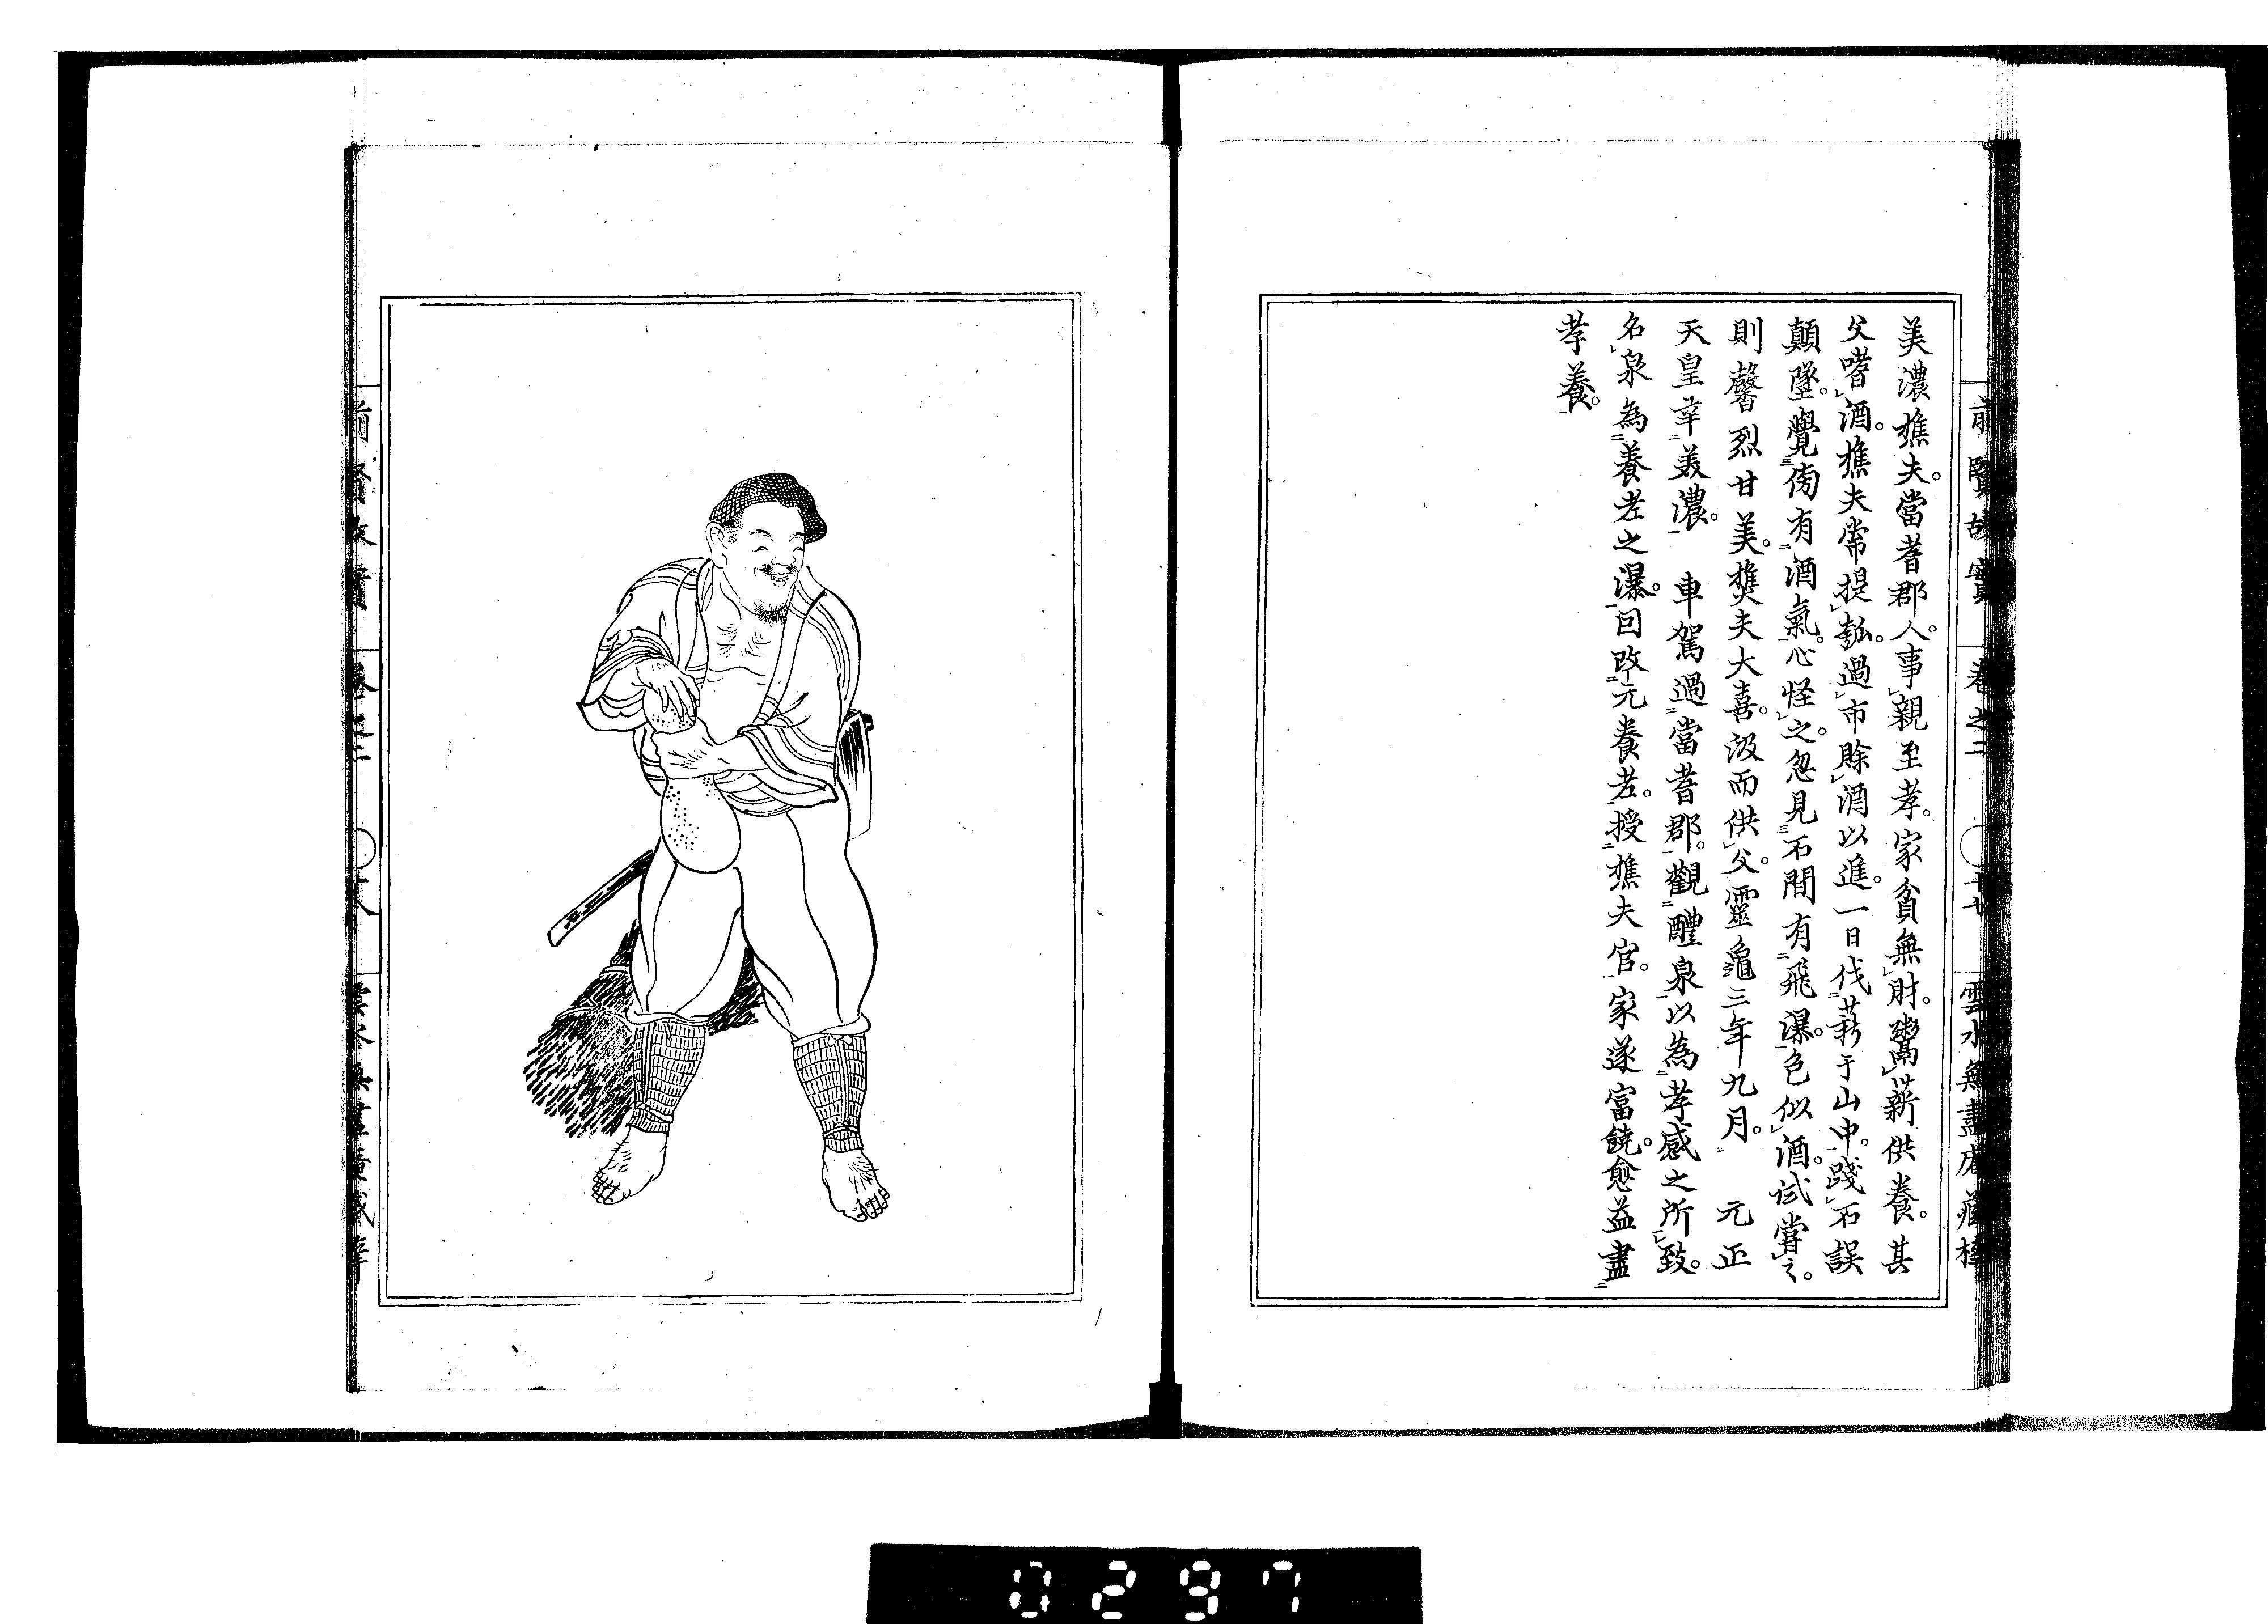 前賢故實 卷之二 十七 雲水無盡庵藏
美濃樵夫。當耆郡人。事親至孝。家貧無財。鬻薪供養。其
父嗜酒。樵夫常提瓠。過市賖酒以進。一日伐薪于山中。踐石誤
顛墜。覺傍有酒氣。心怪之。忽見石間有飛瀑。色似酒。試嘗之。
則馨烈甘美。樵夫大喜。汲而供父。靈龜三年九月。 元正
天皇幸美濃。 車駕過當耆郡。觀醴泉以為孝感之所致。
名泉為養老之瀑。因改元養老。授樵夫官。家遂富饒。愈益盡
孝養。
0297